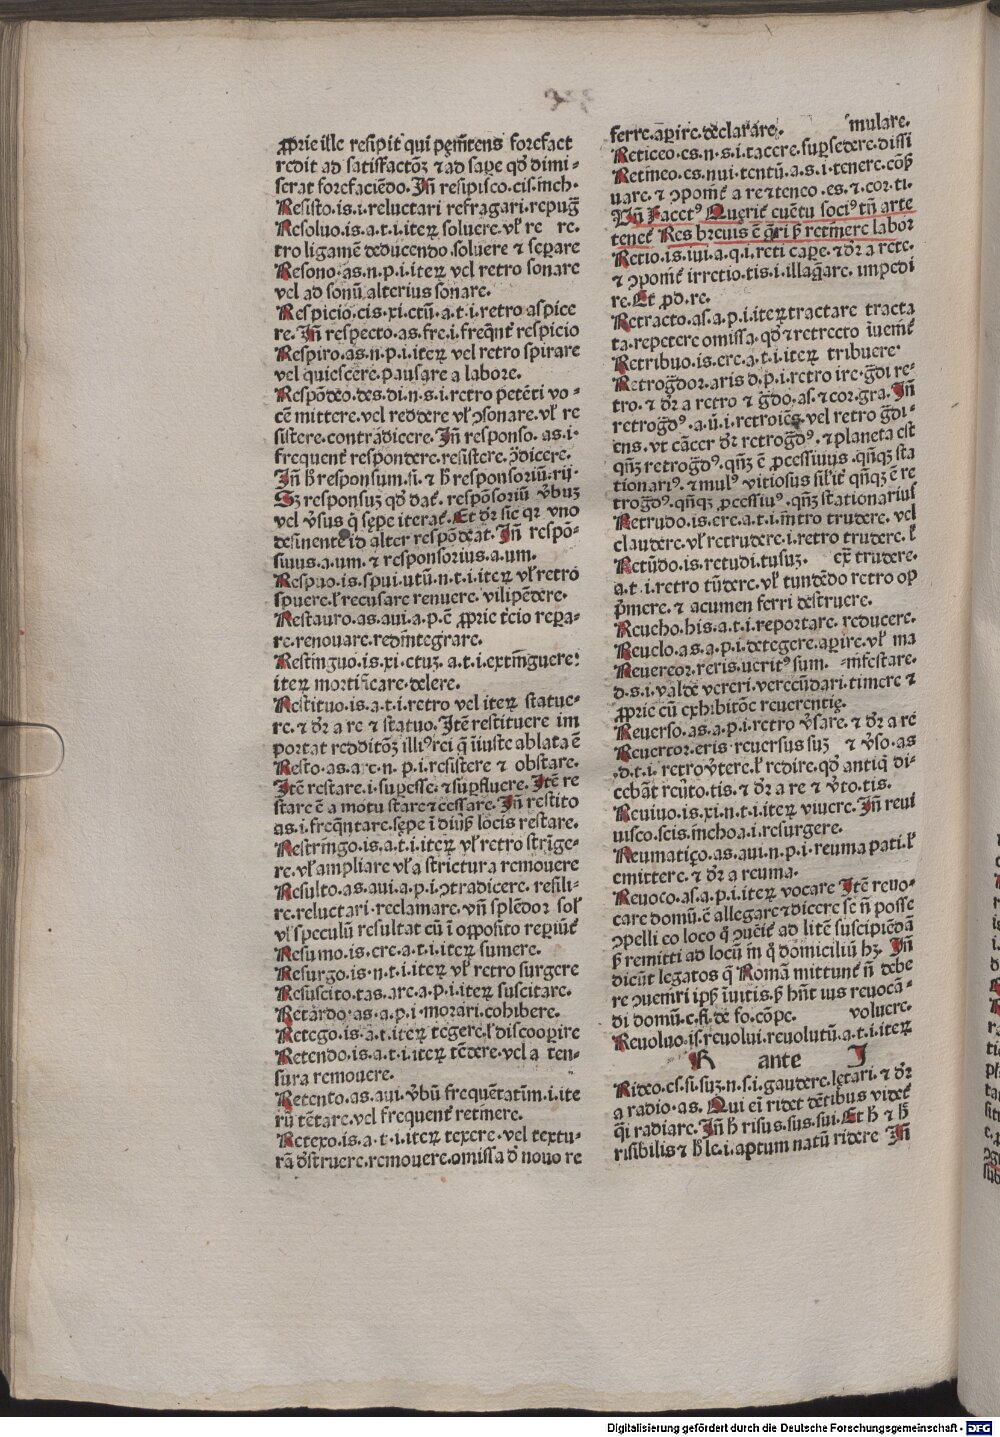 ꝓprie ille resipit qui pęnitens forefact
redit ad satisfactōꝫ ⁊ ad saꝑe qd̄ dimi-
serat forefaciēdo. Iñ resipisco.cis.inch.
Resisto.is.i.reluctari refragari.repug̃
Resoluo.is.a.t.i.iteꝝ soluere.vł re re.
tro ligamē deducendo.soluere ⁊ seꝑare
Resono.as.n.p.i.iteꝝ vel retro sonare
vel ad sonū alterius sonare.
Respicio.cis.xi.ctū.a.t.i.retro aspice
re. Iñ respecto.as.fre.i.freqñt̉ respicio
Respiro.as.n.p.i.iteꝝ vel retro spirare
vel quiescere.pausare a labore.
Respōdeo.des.di.n.s.i.retro petēti vo-
cē mittere.vel reddere vł ↄsonare.vł re
sistere.contrādicere. Iñ responso.as.i.
frequent̉ respondere.resistere.p̄dicere.
Iñ h̄ responsum.si.⁊ h̄ responsoriū.rij.
Sꝫ responsuꝫ qd̄ dat̉.respōsoriū v̄buꝫ
vel v̄sus q̄ sępe iterat̉. Et dr̄ sic qꝛ vno
desinente id alter respōdeat. Iñ respō-
siuus.a.um.⁊ responsorius.a.um.
Respuo.is.spui.utū.n.t.i.iteꝝ vł retro
spuere.ł recusare renuere.vilipēdere.
Restauro.as.aui.a.p.ē ꝓprie t̉cio reꝑa-
re.renouare.redintegrare.
Restinguo.is.xi.ctuꝫ.a.t.i.extinguere:
iteꝝ mortificare.delere.
Restituo.is.a.t.i.retro vel iteꝝ statue-
re.⁊ dr̄ a re ⁊ statuo. Itē restituere im
portat redditōꝫ illiꝰ rei q̄ iiuste ablata ē
Resto.as.are.n.p.i.resistere ⁊ obstare.
Itē restare.i.suꝑesse.⁊ suꝑfluere. Itē re
stare ē a motu stare ⁊ cessare. Iñ restito
as.i.freq̄ntare.sępe ī diuſ̉ locis restare.
Restringo.is.a.t.i.iteꝝ vł retro strīge-
re.vł ampliare vł a strictura remouere
Resulto.as.aui.a.p.i.ↄtradicere.resili-
re.reluctari.reclamare.vñ splēdor soł
vł speculū resultat cū ī oꝓposito reꝑiūt̉
Resumo.is.ere.a.t.i.iteꝝ sumere.
Resurgo.is.n.t.i.iteꝝ vł retro surgere
Resuscito.tas.are.a.p.i.iteꝝ suscitare.
Retardo.as.a.p.i.morari.cohibere.
Retego.is.a.t.iteꝝ tegere.ł discooꝑire
Retendo.is.a.t.i.iteꝝ tēdere.vel a ten-
sura remouere.
Retento.as.aui.v̄bū frequētatīm.i.ite
rū tētare.vel frequent̉ retinere.
Retexo.is.a.t.i.iteꝝ texere.vel textu-
rā d̄struere.remouere.omissa d̄ nouo re
ferre.aꝑire.declarare. mulare.
Reticeo.es.n.s.i.tacere.suꝑsedere.dissi
Retineo.es.nui.tentū.a.s.i.tenere.cōp̄
uare.⁊ ↄponit̉ a re ⁊ teneo.es.⁊.cor.ti.
Vñ Facetꝰ Querit̉ euētu sociꝰ tñ arte
tenet̉ Res breuis ē q̄ri ſ̉ retinere labor
Retio.is.iui.a.q.i.reti caꝑe.⁊ dr̄ a rete.
⁊ ↄponit̉ irretio.tis.i.illaq̄are.impedi
re. Et ꝓd.re.
Retracto.as.a.p.i.iteꝝ tractare tracta
ta.repetere omissa.qd̄ ⁊ retrecto īuenit̉
Retribuo.is.ere.a.t.i.iteꝝ tribuere.
Retrog̃dor.aris d.p.i.retro ire.g̃di re-
tro.⁊ dr̄ a retro ⁊ g̃do.as.⁊ cor.gra. Iñ
retrog̃dꝰ.a.ū.i.retroiēs.vel retro g̃di-
ens.vt cācer dr̄ retrog̃dꝰ.⁊ planeta est
qñꝫ retrog̃dꝰ.qñꝫ ē ꝓcessiuus.qñqꝫ sta
tionariꝰ.⁊ mulꝰ vitiosus silit̉ qñqꝫ ē re
trog̃dꝰ.qñqꝫ ꝓcessiuꝰ.qñꝫ stationarius
Retrudo.is.ere.a.t.i.intro trudere.vel
claudere.vł retrudere.i.retro trudere.ł
Retūdo.is.retudi.tusuꝫ. ex̄ trudere.
a.t.i.retro tūdere.vł tundēdo retro op
p̄mere.⁊ acumen ferri destruere.
Reueho.his.a.t.i.reportare.reducere.
Reuelo.as.a.p.i.detegere.aꝑire.vł ma
Reuereor.reris.ueritꝰ sum. -nifestare.
d.s.i.valde vereri.verecūdari.timere ⁊
ꝓprie cū exhibitōe reuerentię.
Reuerso.as.a.p.i.retro v̄sare.⁊ dr̄ a re
Reuertor.eris.reuersus suꝫ ⁊ v̄so.as
.d.t.i.retrov̄tere.ł redire.qd̄ antiq̄ di-
cebāt reūto.tis.⁊ dr̄ a re ⁊ v̄to.tis.
Reuiuo.is.xi.n.t.i.iteꝝ viuere. Iñ reui
uisco.scis.inchoa.i.resurgere.
Reumatiço.as.aui.n.p.i.reuma pati.ł
emittere.⁊ dr̄ a reuma.
Reuoco.as.a.p.i.iteꝝ vocare Itē reuo-
care domū.ē allegare ⁊ dicere se ñ posse
ↄpelli eo loco q̄ ↄuēit̉ ad litē suscipiēdā
ſ̉ remitti ad locū in q̄ domiciliū hꝫ. Iñ
dicūt legatos q̄ Romā mittunt̉ ñ debe
re ↄueniri ipſ̉ iuitis.ſ̉ hñt ius reuocā-
di domū.c.fi.de fo.cōpe. voluere.
Reuoluo.is.reuolui.reuolutū.a.t.i.iteꝝ
R ante I
Rideo.es.si.suꝫ.n.s.i.gaudere.lętari.⁊ dr̄
a radio.as. Qui eī ridet dētibus videt̉
q̄i radiare. Iñ h̄ risus.sus.sui. Et h̄ ⁊ h̄
risibilis ⁊ h̄ le.i.aptum natū ridere Iñ
Digitalisierung gefördert durch die Deutsche Forschungsgemeinschaft - DFG